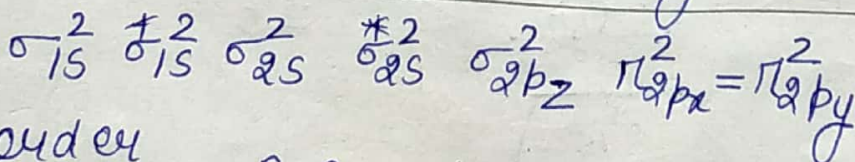 σ1s² σ*1s² σ2s² σ*2s² σ2pz² π2px² = π2py²
order